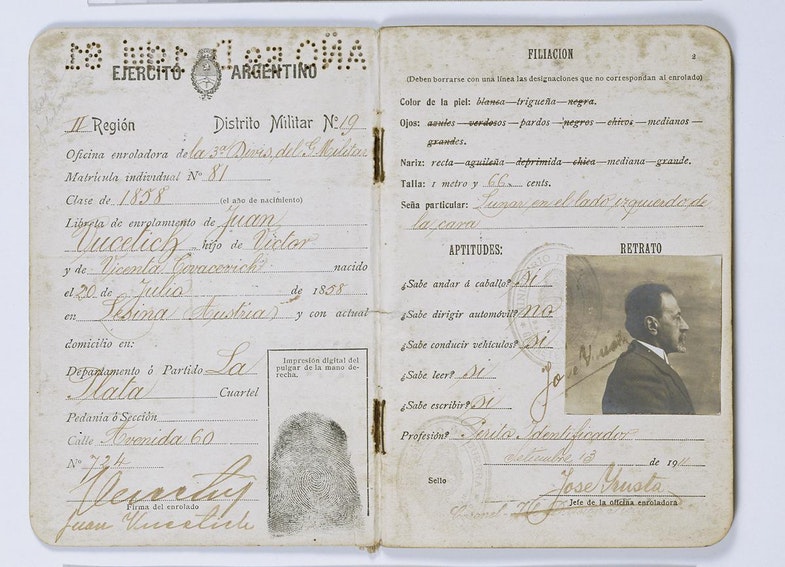 EJERCITO ARGENTINO
II Región Distrito Militar Nº 19
Oficina enroladora de la 3ª Divis. del G. Militar
Matrícula individual Nº 81
Clase de 1858 (el año de nacimiento)
Libreta de enrolamiento de Juan
Vucetich hijo de Victor
y de Vicenta Covacevich nacido
el 20 de Julio de 1858
en Lesina (Austria) y con actual
domicilio en:
Departamento ó Partido La
Plata Cuartel
Pedanía ó Sección
Calle Avenida 60
Nº 724
Firma del enrolado
Juan Vucetich
Impresión digital del
pulgar de la mano de-
recha.
FILIACION
2
(Deben borrarse con una línea las designaciones que no correspondan al enrolado)
Color de la piel: blanca—trigueña—negra.
Ojos: azules—verdosos—pardos—negros—chicos—medianos—
grandes.
Nariz: recta—aguileña—deprimida—chica—mediana—grande.
Talla: 1 metro y 66 cents.
Seña particular: Lunar en el lado izquierdo de
la cara
APTITUDES:
¿Sabe andar á caballo? si
¿Sabe dirigir automóvil? no
¿Sabe conducir vehículos? si
¿Sabe leer? si
¿Sabe escribir? si
RETRATO
Profesión? Perito Identificador
Setiembre 13 de 1911
Sello
Jefe de la oficina enroladora